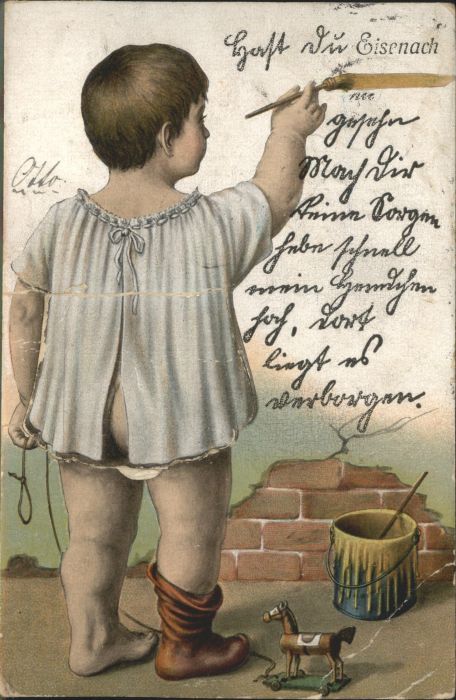 Hast du Eisenach
nie
gesehn
Mach Dir
keine Sorgen
hebe schnell
mein Hemdchen
hoch, dort
liegt es
verborgen.
Otto